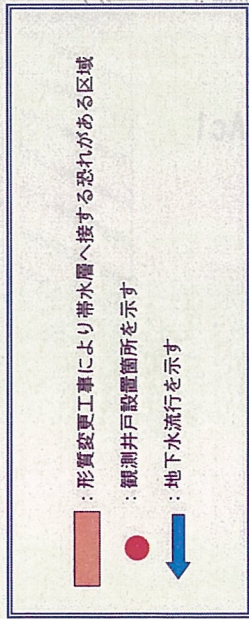 ：形質変更工事により帯水層へ接する恐れがある区域
：観測井戸設置箇所を示す
：地下水流行を示す